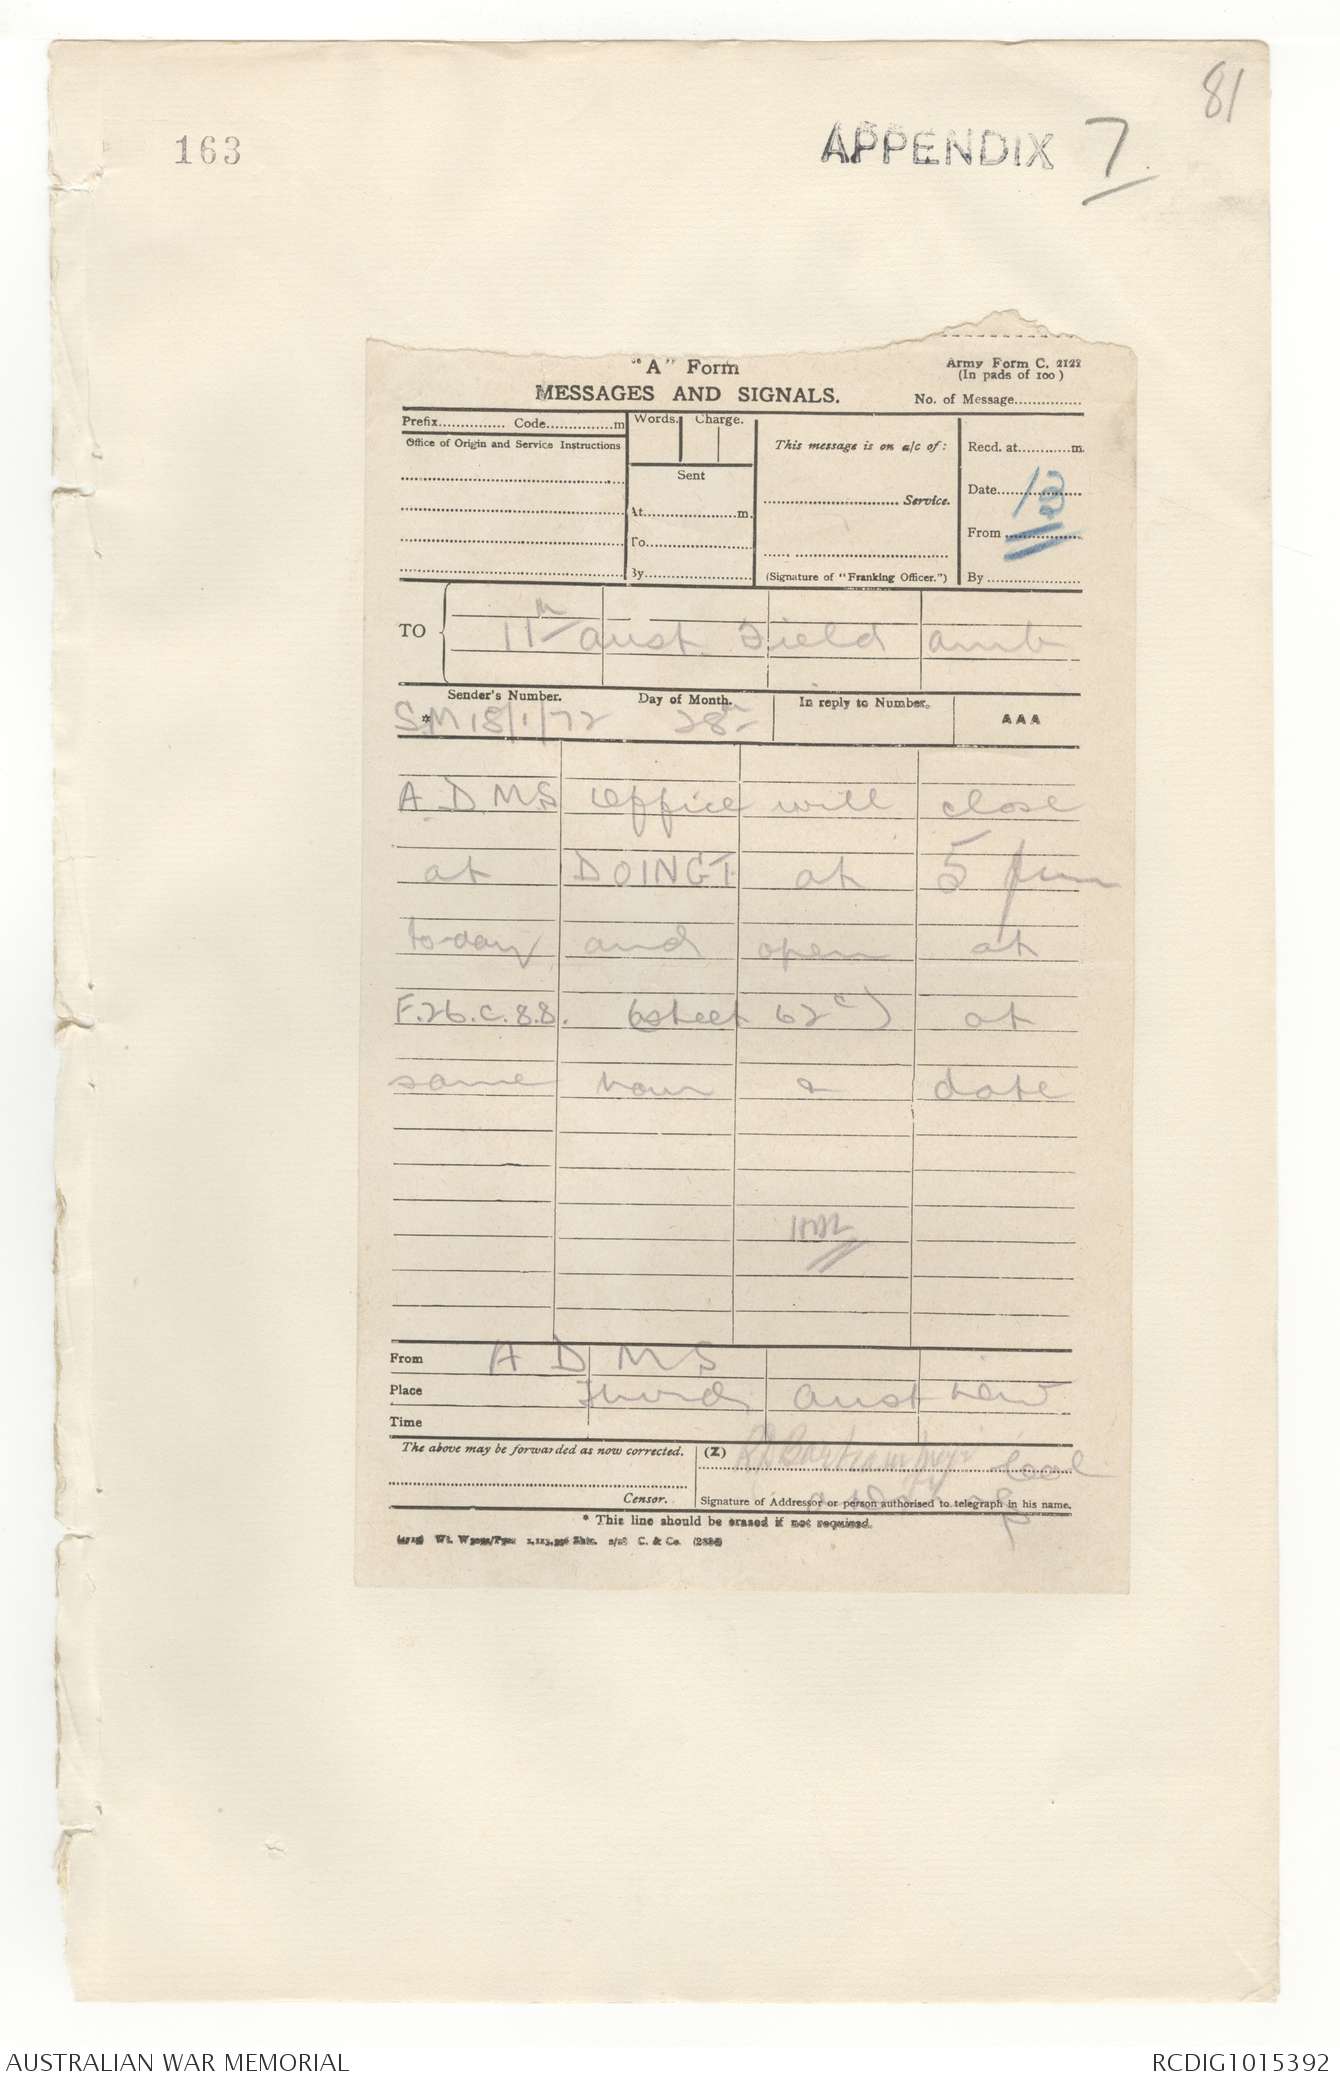 81
163
APPENDIX 7.
"A" Form
Army Form C. 2121
(In pads of 100)
MESSAGES AND SIGNALS.
No. of Message...............
Prefix............... Code...............m
Words. Charge.
This message is on a/c of:
Recd. at............m.
Office of Origin and Service Instructions
Sent
Date...............
13
............... Service.
At...............m.
From ...............
To...............
By...............
(Signature of "Franking Officer.")
By ...............
TO
11th Aust. Field Amb
Sender's Number.
Day of Month.
In reply to Number.
* SM 18/1/72
28th
AAA
A D M S Office will close
at DOINGT at 5 pm
to-day and open at
F.26.c.8.8. (sheet 62c) at
same hour & date
From A D M S
Place Third Aust Div
Time
The above may be forwarded as now corrected.
(Z)
Col
Censor.
Signature of Addressor or person authorised to telegraph in his name.
* This line should be erased if not required.
C. & Co.
AUSTRALIAN WAR MEMORIAL
RCDIG1015392